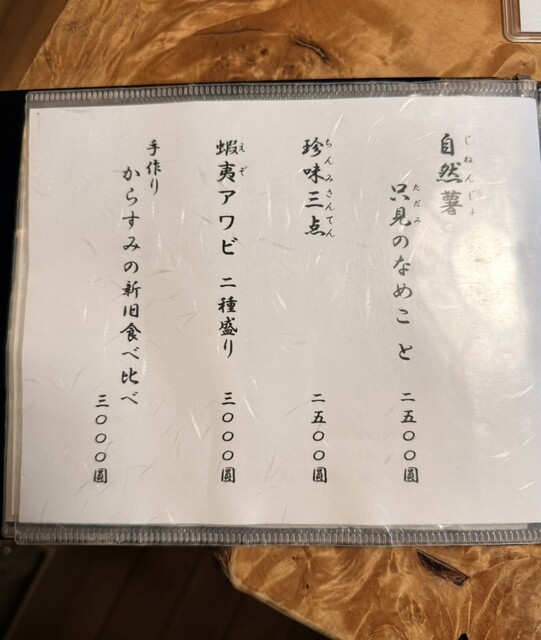 自然薯
じねんじょ
只見のなめこと
ただみ
二五〇〇圓
珍味三点
ちんみさんてん
二五〇〇圓
蝦夷アワビ 二種盛り
えぞ
三〇〇〇圓
手作り
からすみの新旧食べ比べ
三〇〇〇圓